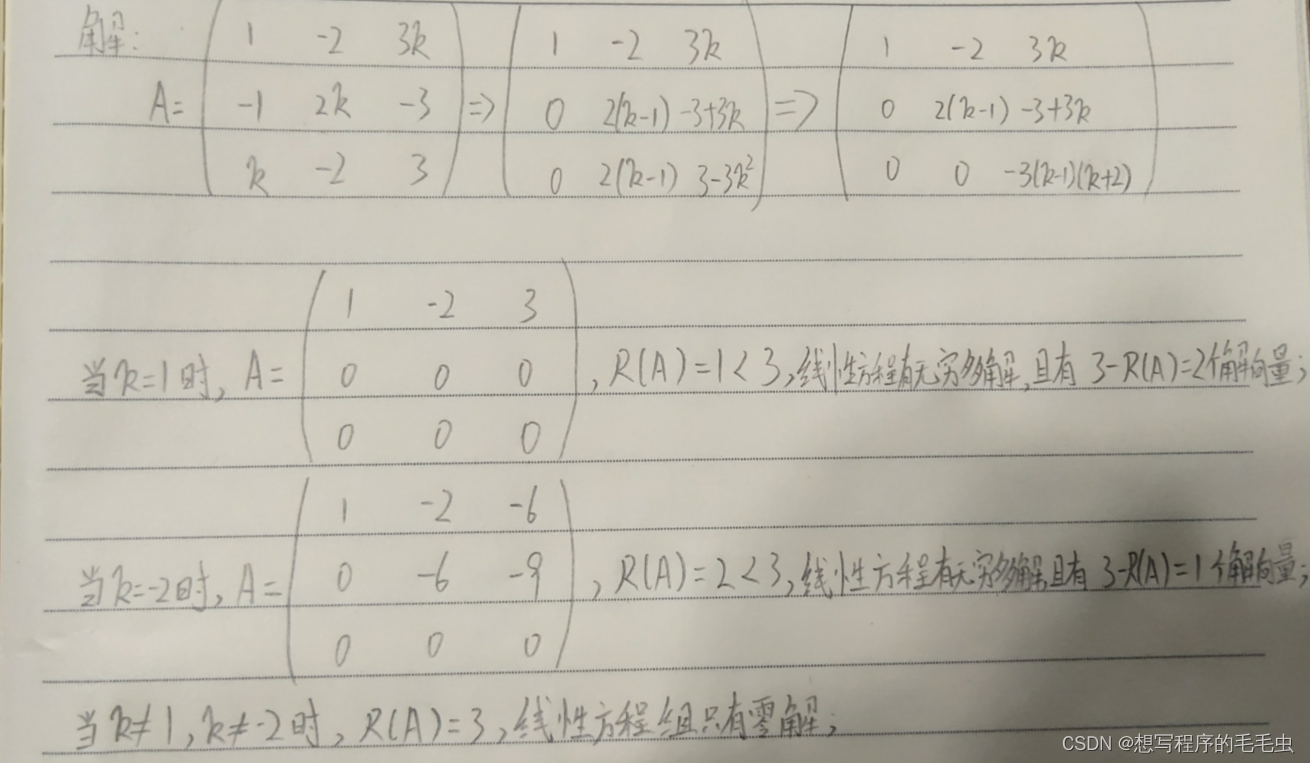 解:
1 -2 3k 1 -2 3k 1 -2 3k
A= -1 2k -3 => 0 2(k-1) -3+3k => 0 2(k-1) -3+3k
k -2 3 0 2(k-1) 3-3k² 0 0 -3(k-1)(k+2)
1 -2 3
当k=1时, A= 0 0 0 , R(A)=1<3,线性方程有无穷多解,且有 3-R(A)=2个解向量;
0 0 0
1 -2 -6
当k=-2时, A= 0 -6 -9 , R(A)=2<3,线性方程有无穷多解,且有 3-R(A)=1个解向量;
0 0 0
当k≠1,k≠-2时, R(A)=3,线性方程组只有零解;
CSDN @想写程序的毛毛虫